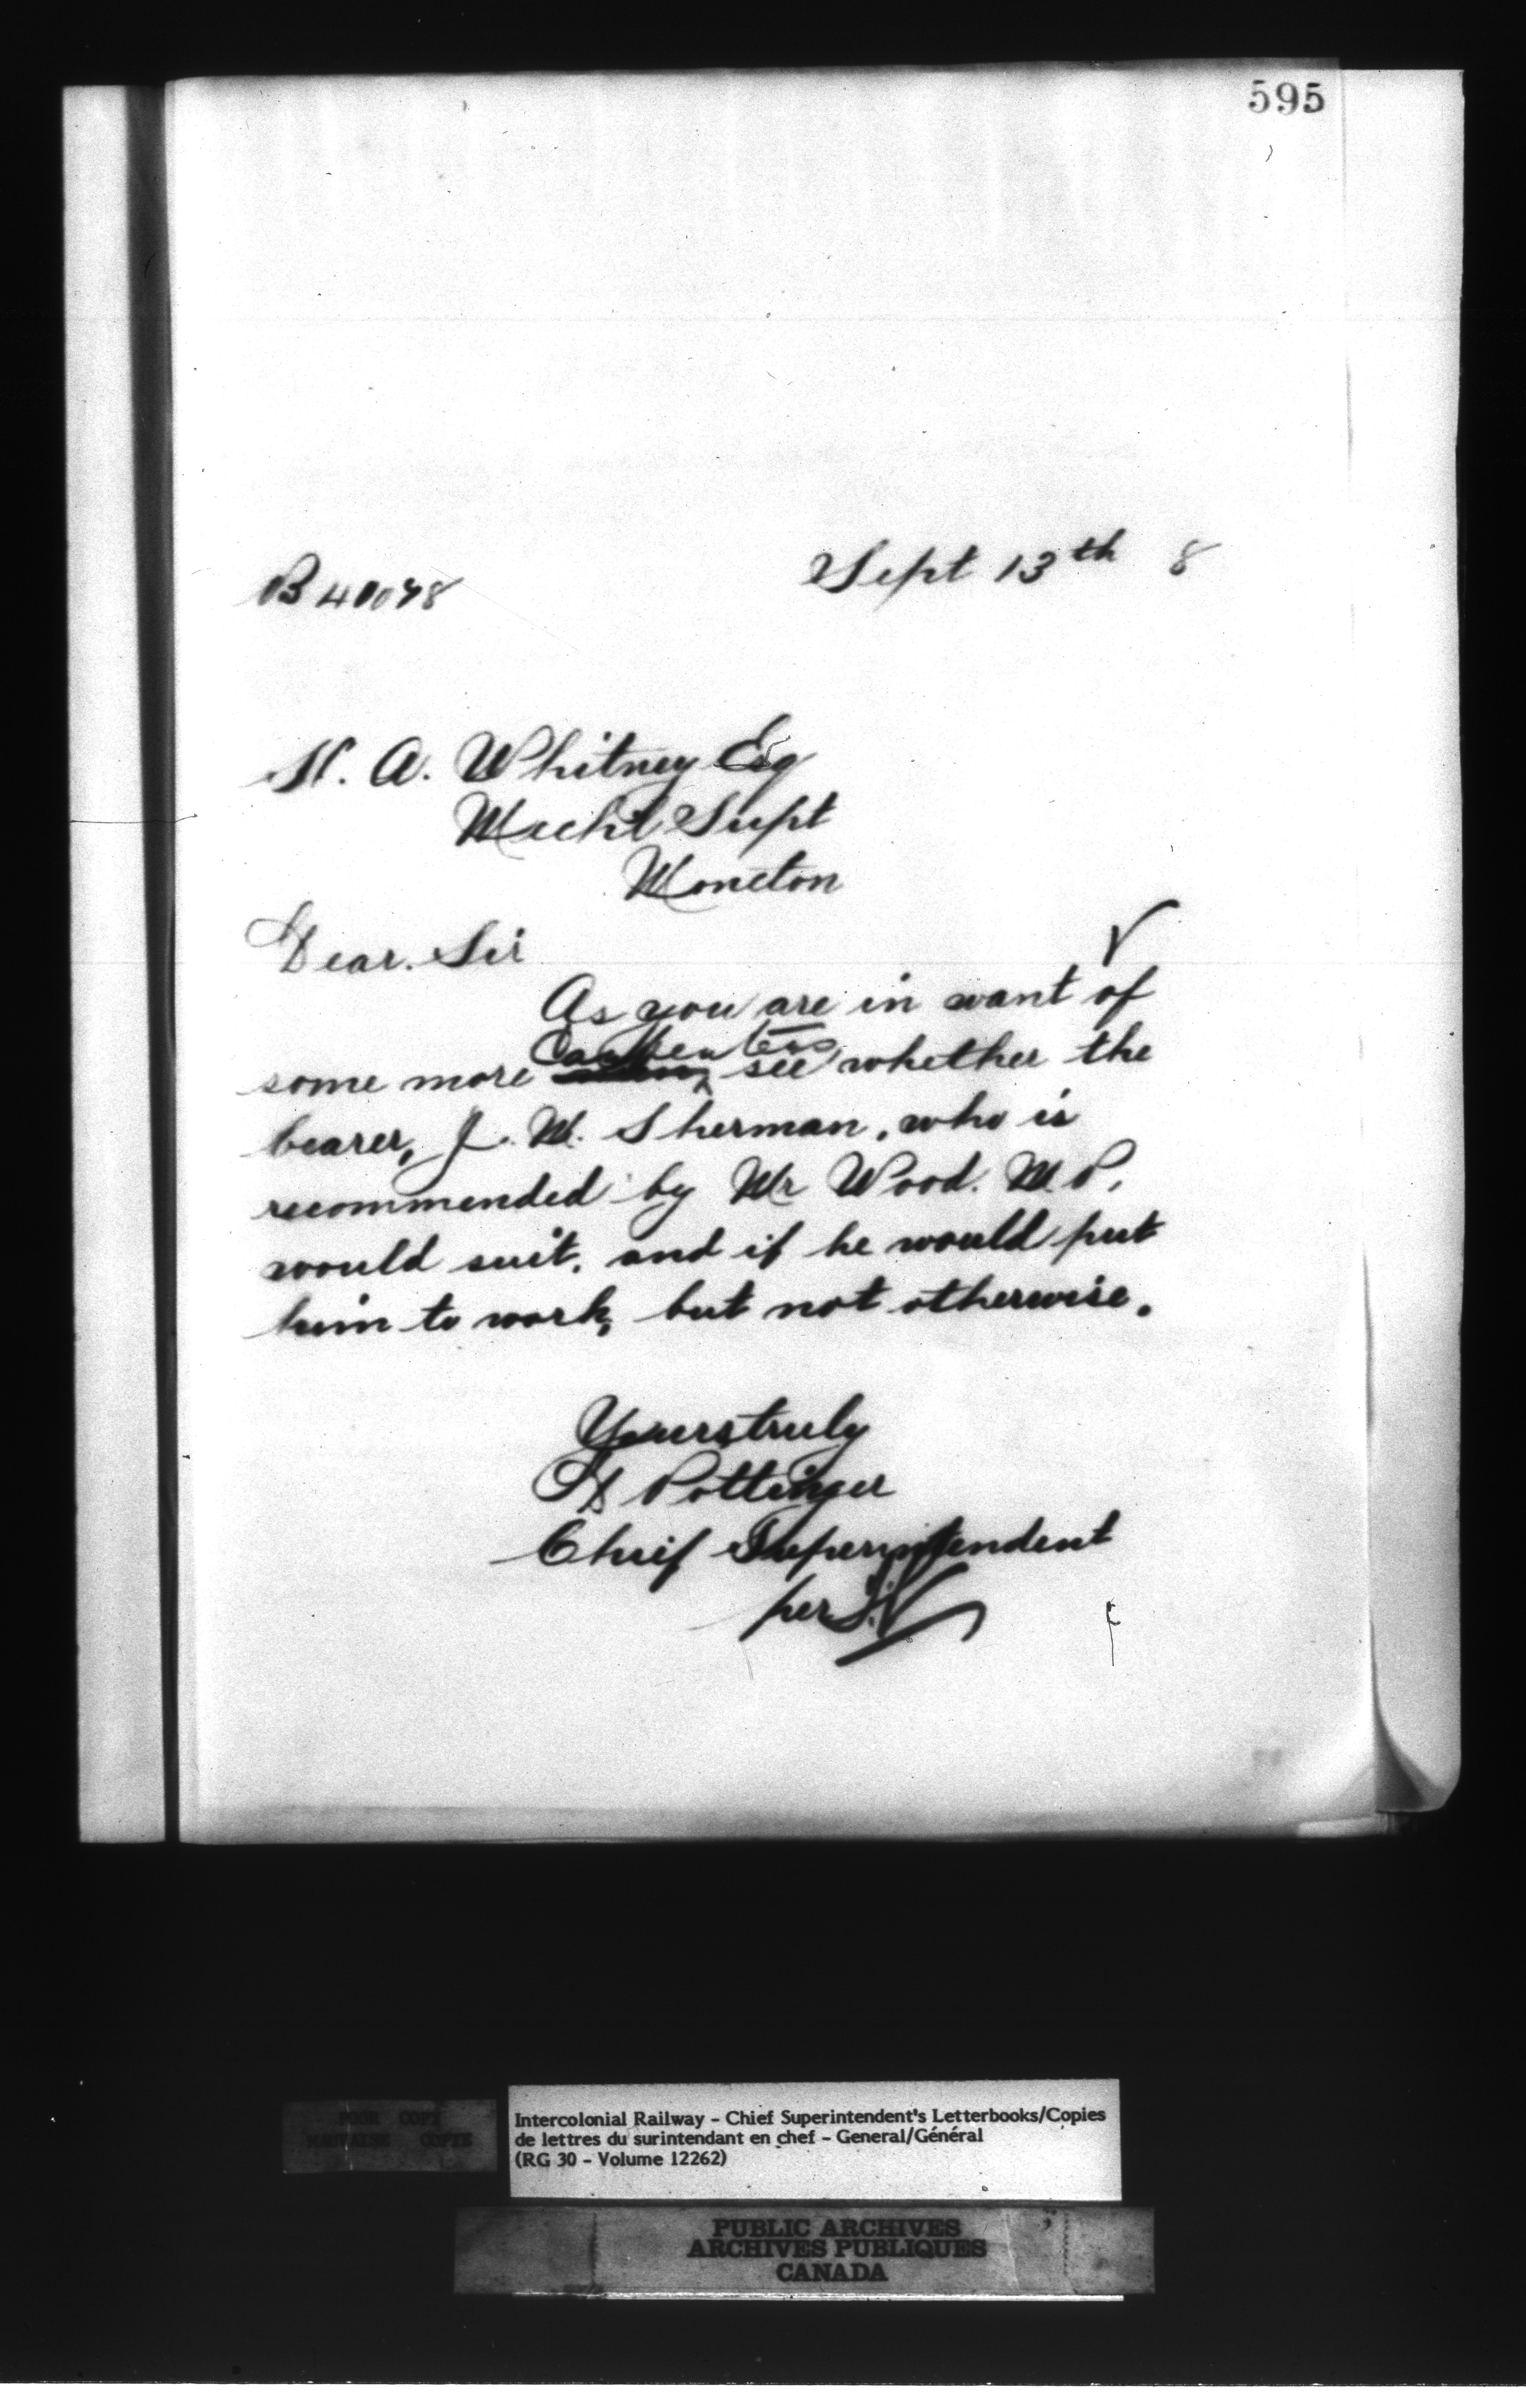 595
Sept 13th 8
B 40078
H. A. Whitney Esq
Mechl Supt
Moncton
Dear. Sir
As you are in want of
Carpenters
some more see whether the
bearer, J. W. Sherman, who is
recommended by Mr Wood. M.P.
would suit. and if he would put
him to work, but not otherwise.
Yours truly
D Pottinger
Chief Superintendent
per
POOR COPY
MAUVAISE COPIE
Intercolonial Railway - Chief Superintendent's Letterbooks/Copies
de lettres du surintendant en chef - General/Général
(RG 30 - Volume 12262)
PUBLIC ARCHIVES
ARCHIVES PUBLIQUES
CANADA